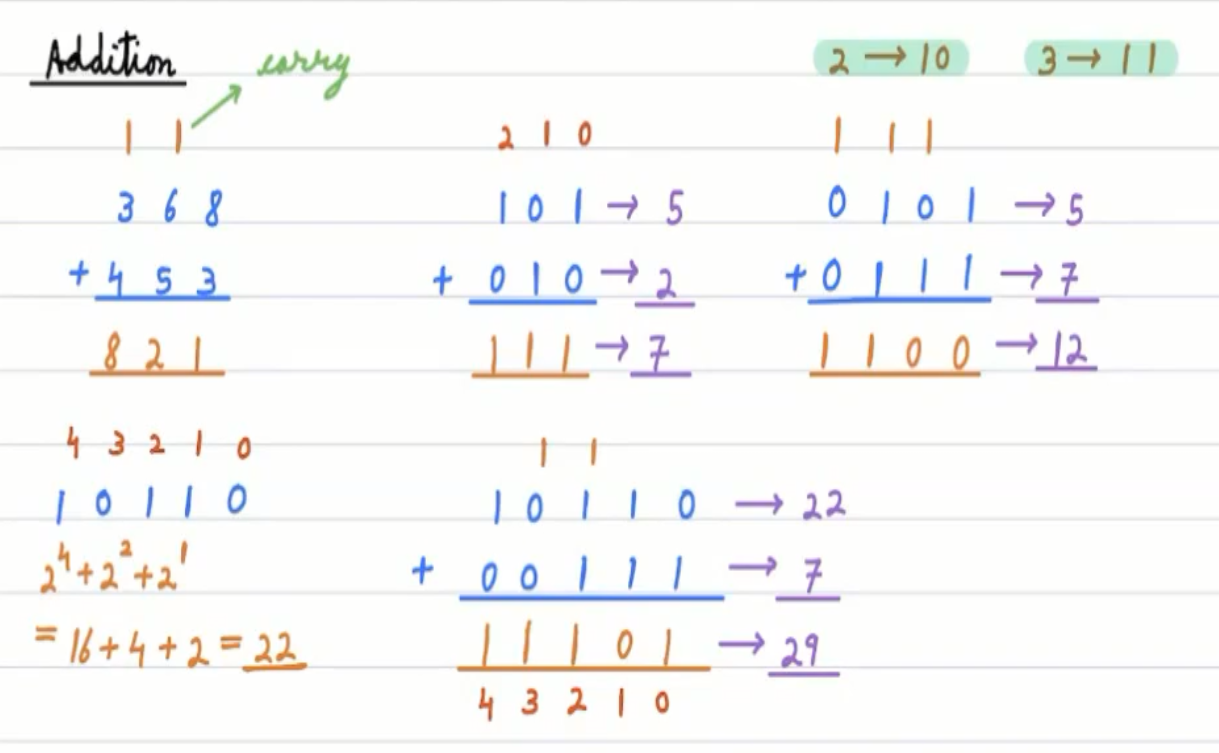 Addition carry 2 → 10 3 → 11
1 1
3 6 8
+ 4 5 3
8 2 1
2 1 0
1 0 1 → 5
+ 0 1 0 → 2
1 1 1 → 7
1 1 1
0 1 0 1 → 5
+ 0 1 1 1 → 7
1 1 0 0 → 12
4 3 2 1 0
1 0 1 1 0
2⁴ + 2² + 2¹
= 16 + 4 + 2 = 22
1 1
1 0 1 1 0 → 22
+ 0 0 1 1 1 → 7
1 1 1 0 1 → 29
4 3 2 1 0